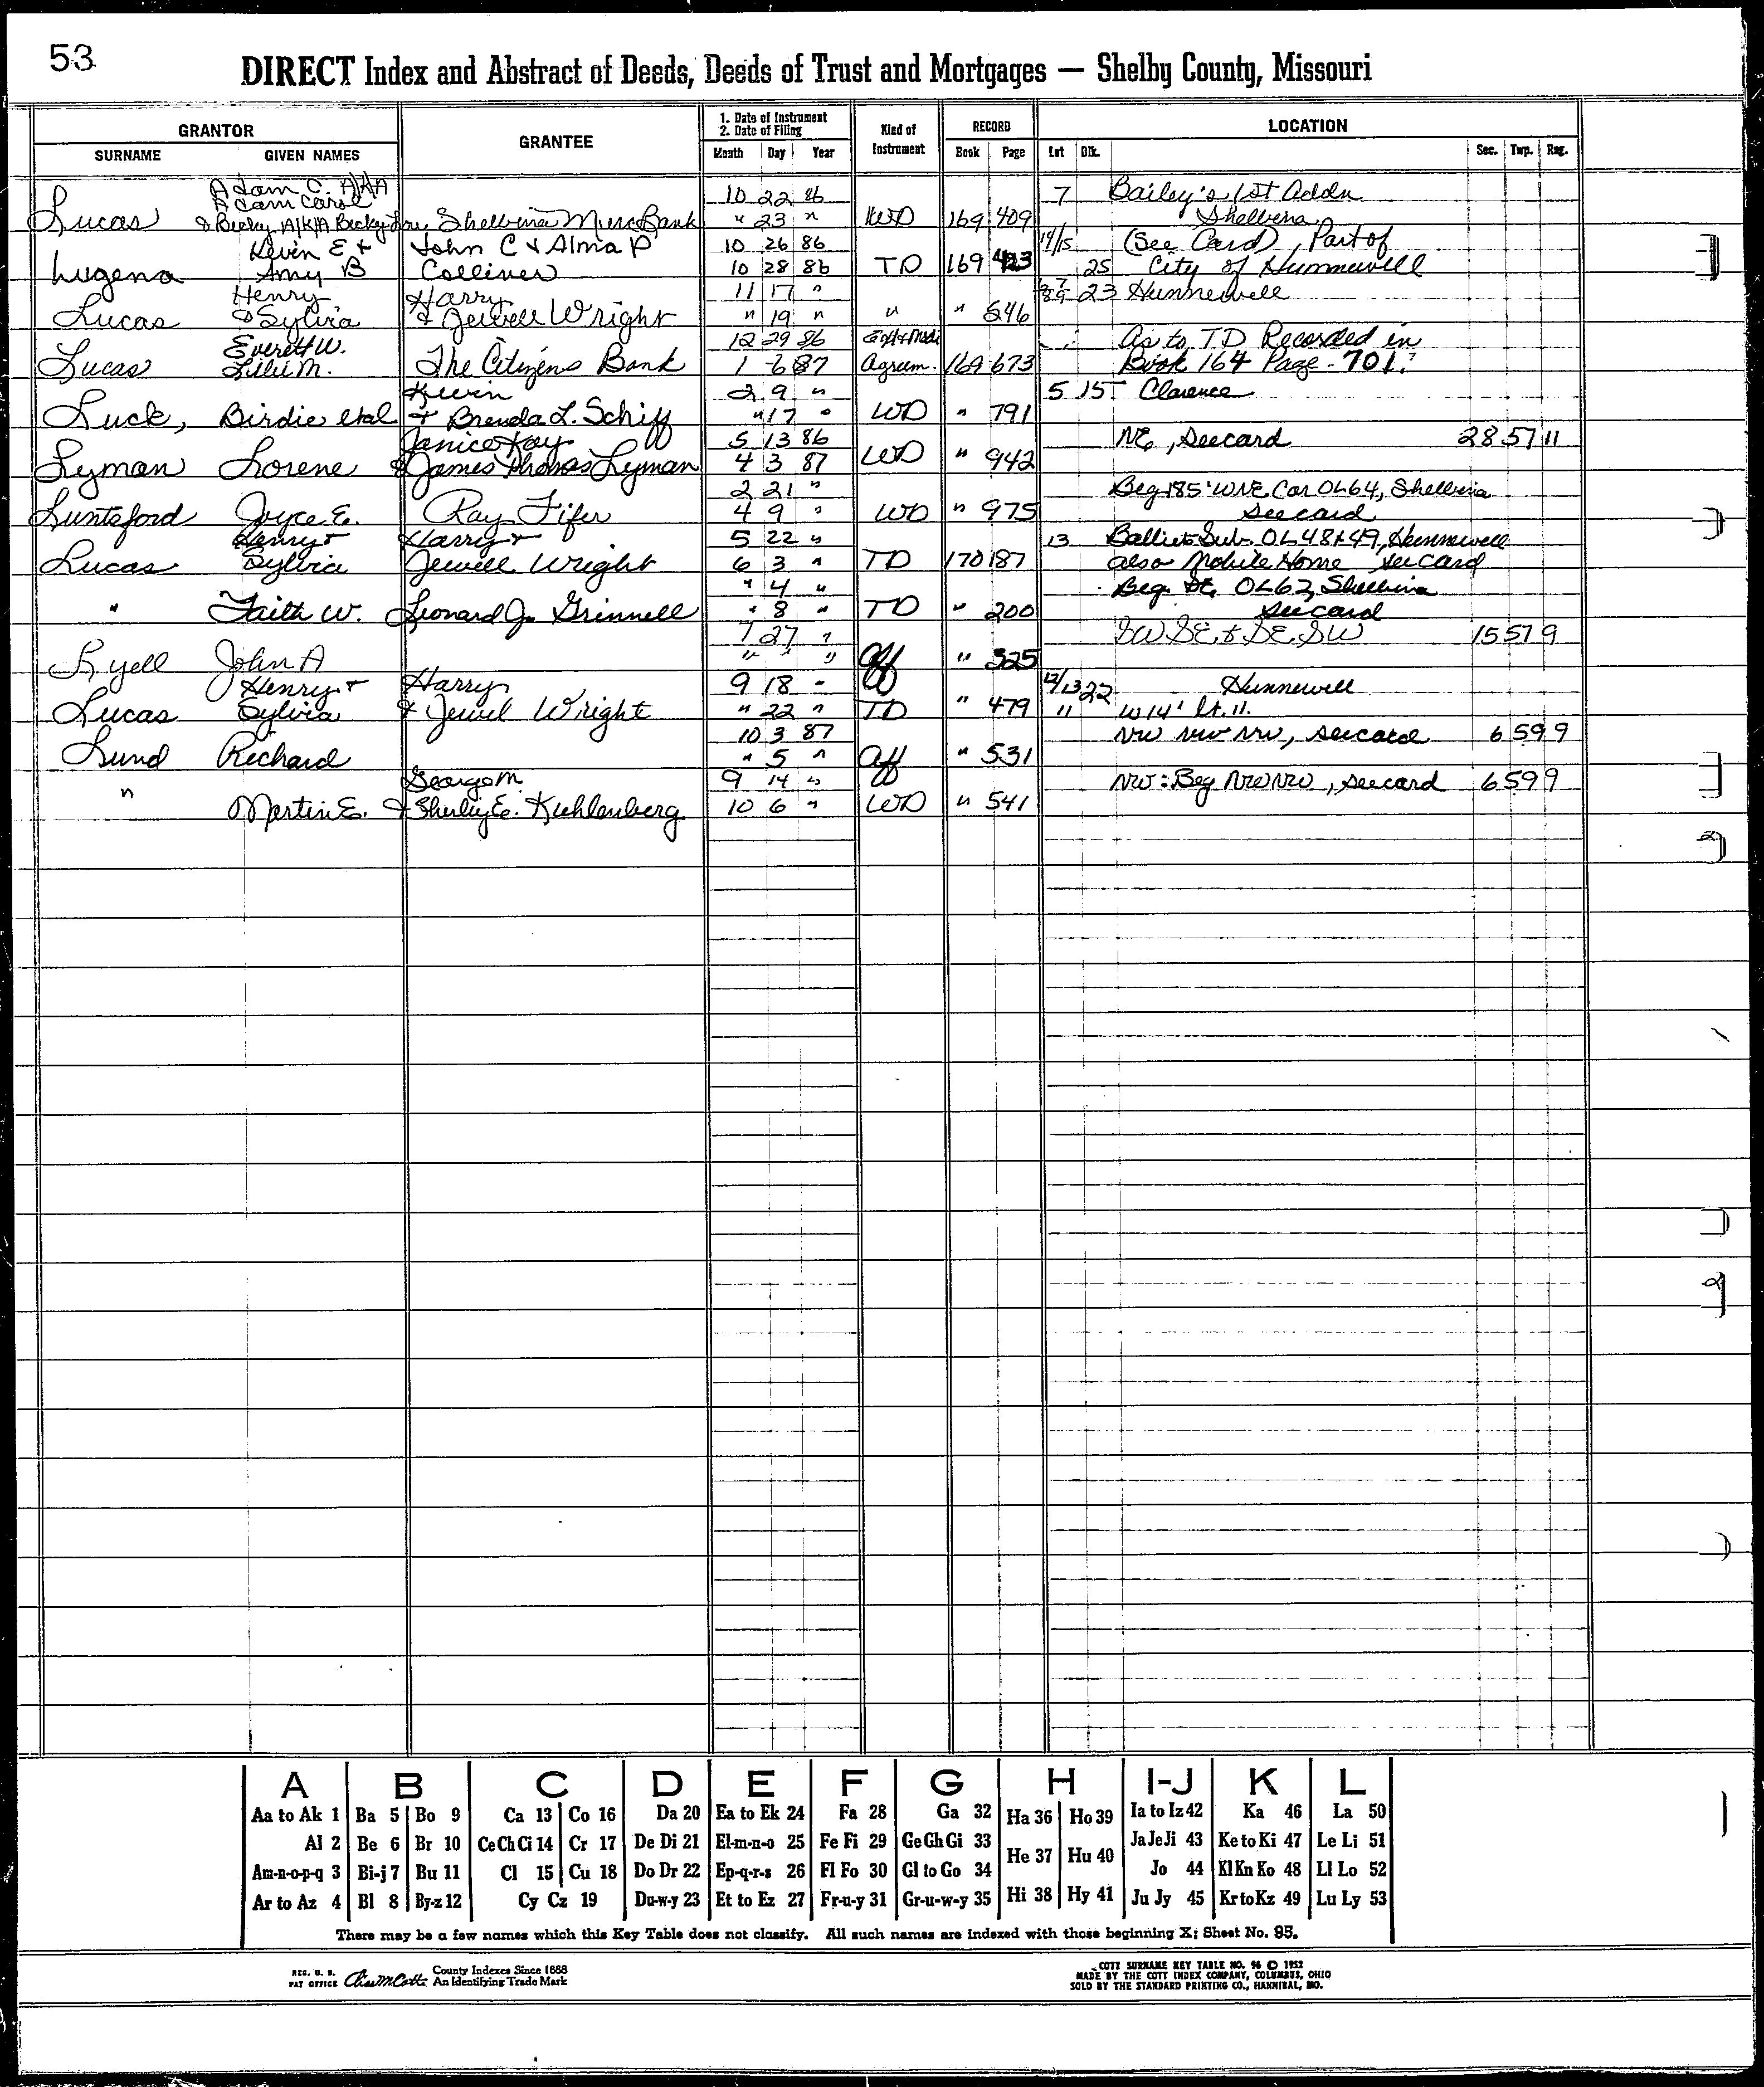 53
DIRECT Index and Abstract of Deeds, Deeds of Trust and Mortgages — Shelby County, Missouri
GRANTOR
SURNAME GIVEN NAMES
GRANTEE
1. Date of Instrument
2. Date of Filing
Month Day Year
Kind of Instrument
RECORD
Book Page
LOCATION
Lot Blk. Sec. Twp. Rag.
Adam C. A/K/A 10 22 86 7 Bailey's 1st Addn
Adam Carol
Lucas & Becky A/K/A Becky Lou Shelbina Merc Bank " 23 " WD 169 409 Shelbina
Kevin E & John C & Alma P 10 26 86 14/15 (See Card), Part of
Lugena Amy B Colliver 10 28 86 TD 169 423 25 City of Hunnewell
Henry Harry 11 17 " 7 8 9 23 Hunnewell
Lucas & Sylvia & Jewell Wright " 19 " " " 546
Everett W. 12 29 86 Ext & Modi As to TD Recorded in
Lucas Lilli M. The Citizens Bank 1 6 87 Agreem. 169 673 Book 164 Page - 701.
Kevin 2 9 " 5 15 Clarence
Luck, Birdie etal & Brenda L. Schiff " 17 " WD " 791
Janice Kay 5 13 86 NE, see card 28 57 11
Lyman Lorene & James Thomas Lyman 4 3 87 WD " 942
2 21 " Beg 185' W NE Cor OL 64, Shelbina
Luntsford Joyce E. Ray Fifer 4 9 " WD " 975 see card
Henry & Harry & 5 22 " 13 Balliet Sub. OL 48 & 49, Hunnewell
Lucas Sylvia Jewell Wright 6 3 " TD 170 187 also Mobile Home see card
" 4 " Beg. OL 62, Shelbina
" Faith W. Leonard J. Grinnell " 8 " TD " 200 see card
7 27 " SW SE & SE, SW 15 57 9
Lyell John A " " " Aff " 325
Henry & Harry 9 18 " 12/13 22 Hunnewell
Lucas Sylvia & Jewel Wright " 22 " TD " 479 11 W 14' lt. 11.
10 3 87 NW NW NW, see card 6 59 9
Lund Richard " 5 " Aff " 531
George M. 9 14 " NW: Beg NW NW, see card 6 59 9
" Martin E. & Shirley E. Kuhlenberg 10 6 " WD " 541
A B C D E F G H I-J K L
Aa to Ak 1 Ba 5 Bo 9 Ca 13 Co 16 Da 20 Ea to Ek 24 Fa 28 Ga 32 Ha 36 Ho 39 Ia to Iz 42 Ka 46 La 50
Al 2 Be 6 Br 10 Ce Ch Ci 14 Cr 17 De Di 21 El-m-n-o 25 Fe Fi 29 Ge Gh Gi 33 He 37 Hu 40 Ja Je Ji 43 Ke to Ki 47 Le Li 51
Am-n-o-p-q 3 Bi-j 7 Bu 11 Cl 15 Cu 18 Do Dr 22 Ep-q-r-s 26 Fl Fo 30 Gl to Go 34 Jo 44 Kl Kn Ko 48 Ll Lo 52
Ar to Az 4 Bl 8 By-z 12 Cy Cz 19 Du-w-y 23 Et to Ez 27 Fr-u-y 31 Gr-u-w-y 35 Hi 38 Hy 41 Ju Jy 45 Kr to Kz 49 Lu Ly 53
There may be a few names which this Key Table does not classify. All such names are indexed with those beginning X; Sheet No. 95.
REG. U. S. PAT OFFICE
County Indexes Since 1888
An Identifying Trade Mark
COTT SURNAME KEY TABLE NO. 96 © 1952
MADE BY THE COTT INDEX COMPANY, COLUMBUS, OHIO
SOLD BY THE STANDARD PRINTING CO., HANNIBAL, MO.